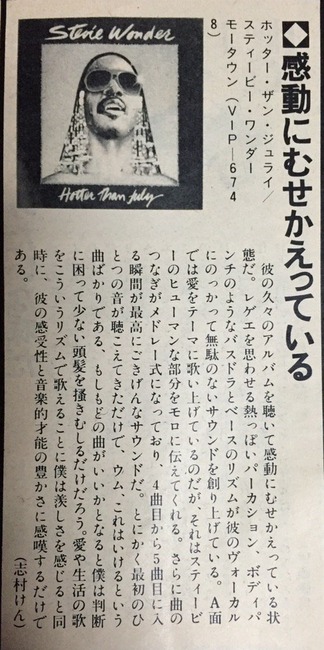 ◆感動にむせかえっている
ホッター・ザン・ジュライ／
スティービー・ワンダー
モータウン（VIP―674
8）
Stevie Wonder
Hotter Than July
彼の久々のアルバムを聴いて感動にむせかえっている状
態だ。レゲエを思わせる熱っぽいパーカション、ボディパ
ンチのようなバスドラとベースのリズムが彼のヴォーカル
にのっかって無駄のないサウンドを創り上げている。A面
では愛をテーマに歌い上げているのだが、それはスティービ
ーのヒューマンな部分をモロに伝えてくれる。さらに曲の
つなぎがメドレー式になっており、4曲目から5曲目に入
る瞬間が最高にごきげんなサウンドだ。とにかく最初のひ
とつの音が聴こえてきただけで、ウム、これはいけるという
曲ばかりである、もしもどの曲がいいかとなると僕は判断
に困って少ない頭髪を掻きむしるだけだろう。愛や生活の歌
をこういうリズムで歌えることに僕は羨しさを感じると同
時に、彼の感受性と音楽的才能の豊かさに感嘆するだけで
ある。
（志村けん）